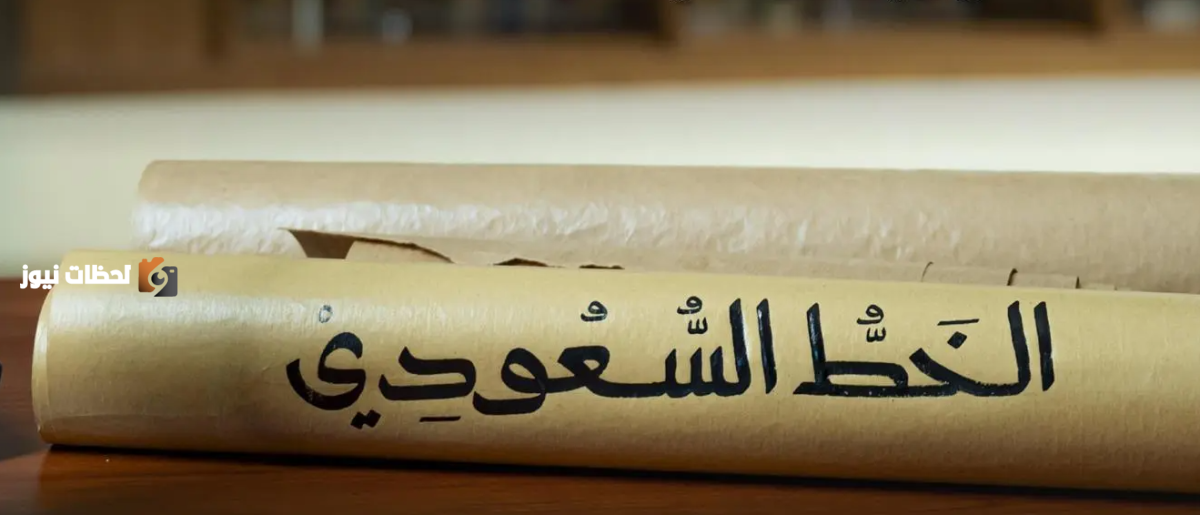 لحظات نيوز
الخَطُّ السُّعُودِيْ